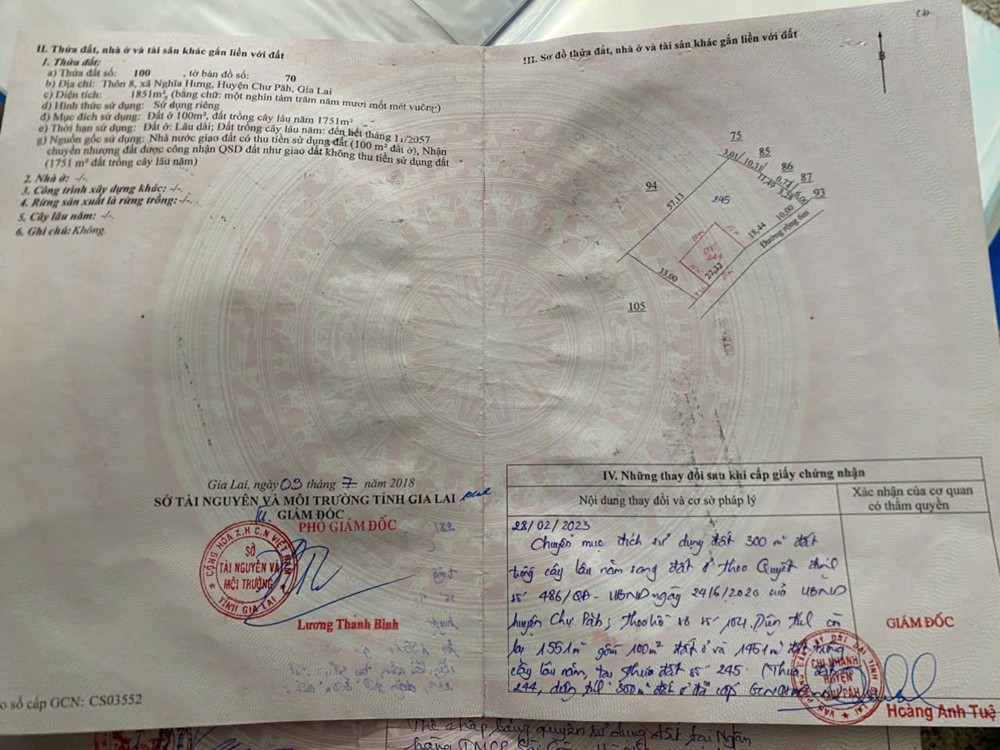 II. Thửa đất, nhà ở và tài sản khác gắn liền với đất
1. Thửa đất:
a) Thửa đất số: 100 , tờ bản đồ số: 70
b) Địa chỉ: Thôn 8, xã Nghĩa Hưng, Huyện Chư Păh, Gia Lai
c) Diện tích: 1851m², (bằng chữ: một nghìn tám trăm năm mươi mốt mét vuông)
d) Hình thức sử dụng: Sử dụng riêng
đ) Mục đích sử dụng: Đất ở 100m², đất trồng cây lâu năm 1751m²
e) Thời hạn sử dụng: Đất ở: Lâu dài; Đất trồng cây lâu năm: đến hết tháng 11/2057
g) Nguồn gốc sử dụng: Nhà nước giao đất có thu tiền sử dụng đất (100 m² đất ở), Nhận
chuyển nhượng đất được công nhận QSD đất như giao đất không thu tiền sử dụng đất
(1751 m² đất trồng cây lâu năm)
2. Nhà ở: -/-
3. Công trình xây dựng khác: -/-
4. Rừng sản xuất là rừng trồng: -/-
5. Cây lâu năm: -/-
6. Ghi chú: Không.
Gia Lai, ngày 09 tháng 7 năm 2018
SỞ TÀI NGUYÊN VÀ MÔI TRƯỜNG TỈNH GIA LAI
GIÁM ĐỐC
PHÓ GIÁM ĐỐC
CỘNG HÒA X.H.C.N VIỆT NAM
SỞ
TÀI NGUYÊN VÀ
MÔI TRƯỜNG
TỈNH GIA LAI
Lương Thanh Bình
o sổ cấp GCN: CS03552
III. Sơ đồ thửa đất, nhà ở và tài sản khác gắn liền với đất
B
75
85
86
87
93
94
3,01
10,31
17,49
57,13
245
10,00
19,44
Đường rộng 6m
33,00
27,32
105
IV. Những thay đổi sau khi cấp giấy chứng nhận
Nội dung thay đổi và cơ sở pháp lý
Xác nhận của cơ quan
có thẩm quyền
28/02/2023
Chuyển mục đích sử dụng đất 300 m² đất
trồng cây lâu năm sang đất ở theo Quyết định
số 486/QĐ-UBND ngày 24/6/2020 của UBND
huyện Chư Păh; theo hồ sơ số
lại 1551m² gồm 100m² đất ở và 1451m² đất trồng
cây lâu năm, tại thửa đất số 245 (Thửa đất
244, diện tích 300m² đất ở đã cấp
GIÁM ĐỐC
CHI NHÁNH
HUYỆN
CHƯ PĂH
Hoàng Anh Tuệ
Thế chấp bằng quyền sử dụng đất tại Ngân
hàng TMCP